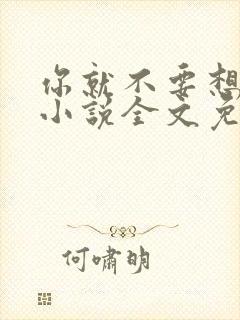 你就不要想
小说全文免
何啸明